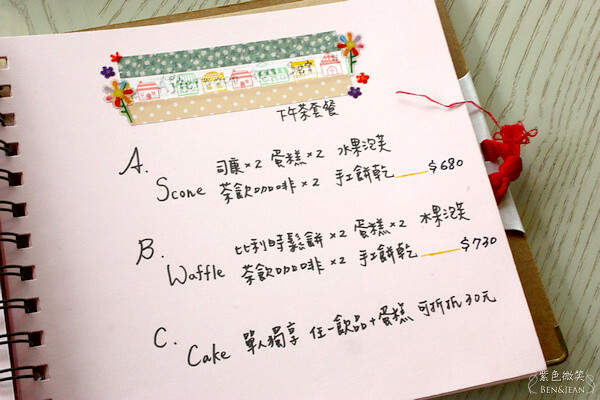 下午茶套餐
A. 司康×2 蛋糕×2 水果泡芙
Scone 茶飲咖啡×2 手工餅乾 $680
B. 比利時鬆餅×2 蛋糕×2 水果泡芙
Waffle 茶飲咖啡×2 手工餅乾 $730
C. Cake 單人獨享 任一飲品+蛋糕 可折抵30元
紫色微笑
BEN&JEAN